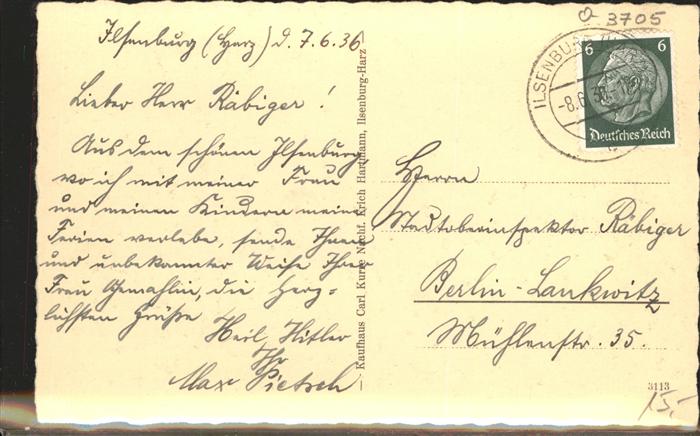 3705
Ilsenburg (Harz) d. 7.6.36
Lieber Herr Räbiger!
Aus dem schönen Ilsenburg,
wo ich mit meiner Frau
und meinen Kindern meine
Ferien verlebe, sende Ihnen
und unbekannter Weise Ihrer
Frau Gemahlin, die herz-
lichsten Grüße
Heil Hitler
Ihr
Max Pietsch
Kaufhaus Carl Kurze Nachf. Erich Hartmann, Ilsenburg-Harz
ILSENBURG
-8.6.36
6 6
Deutsches Reich
Herrn
Stadtoberinspektor Räbiger
Berlin-Lankwitz
Mühlenstr. 35.
3113
15,-